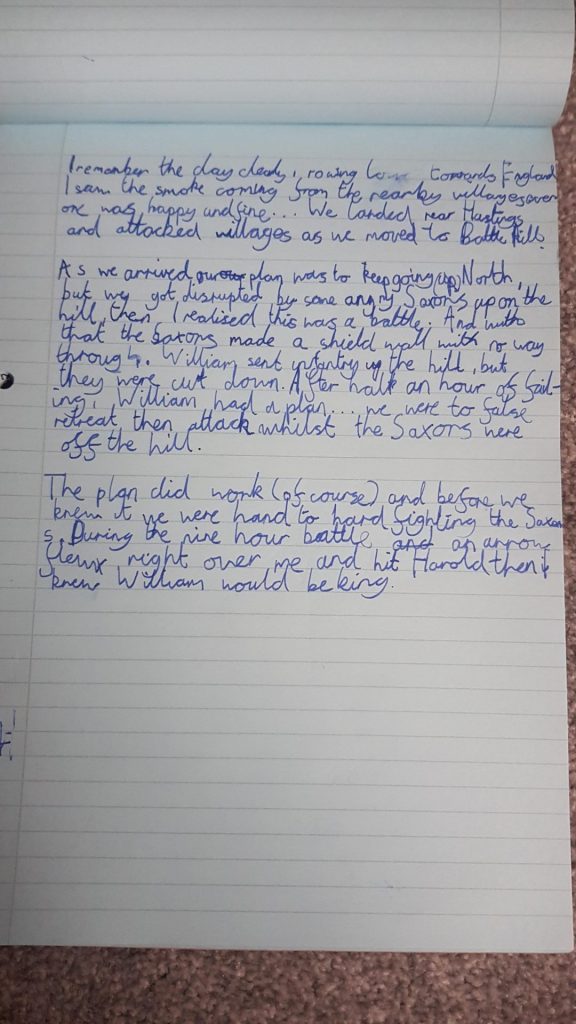 I remember the day clearly, rowing towards England
I saw the smoke coming from the nearby villages over
one was happy and fine... We landed near Hastings
and attacked villages as we moved to Battle Hill.
As we arrived our plan was to keep going up North,
but we got disrupted by some angry Saxons up on the
hill, then I realised this was a battle. And with
that the saxons made a shield wall with no way
through. William sent infantry up the hill, but
they were cut down. After half an hour of fail-
ing, William had a plan... we were to false
retreat then attack whilst the Saxons were
off the hill.
The plan did work (of course) and before we
knew it we were hand to hand fighting the Saxon
s. During the nine hour battle an arrow
flew right over me and hit Harold then I
knew William would be king.